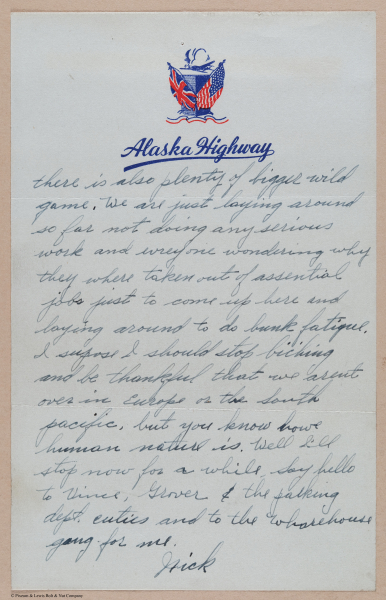 Alaska Highway
there is also plenty of bigger wild
game. We are just laying around
so far not doing any serious
work and evryone wondering why
they where taken out of assential
jobs just to come up here and
laying around to do bunk fatigue.
I supose I should stop biching
and be thankful that we arent
over in Europe or the South
pacific, but you know howe
human nature is. Well I'll
stop now for a while, say hello
to Vince, Grover & the packing
dept. cuties and to the wharehouse
gang for me.
Hick
© Peanut & Lewis Bolt & Nut Company